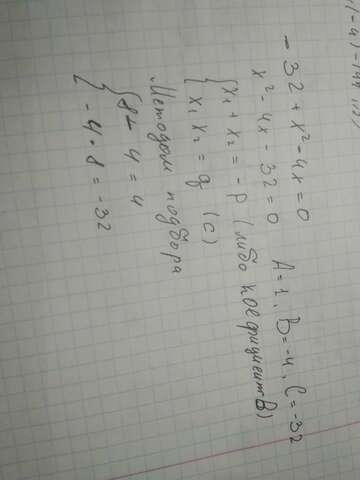 - 32 + x² - 4x = 0
x² - 4x - 32 = 0 A = 1, B = -4, C = -32
{ x₁ + x₂ = -p (либо коефициент B)
{ x₁ x₂ = q (c)
Методом подбора
{ 8 - 4 = 4
{ - 4 · 8 = -32